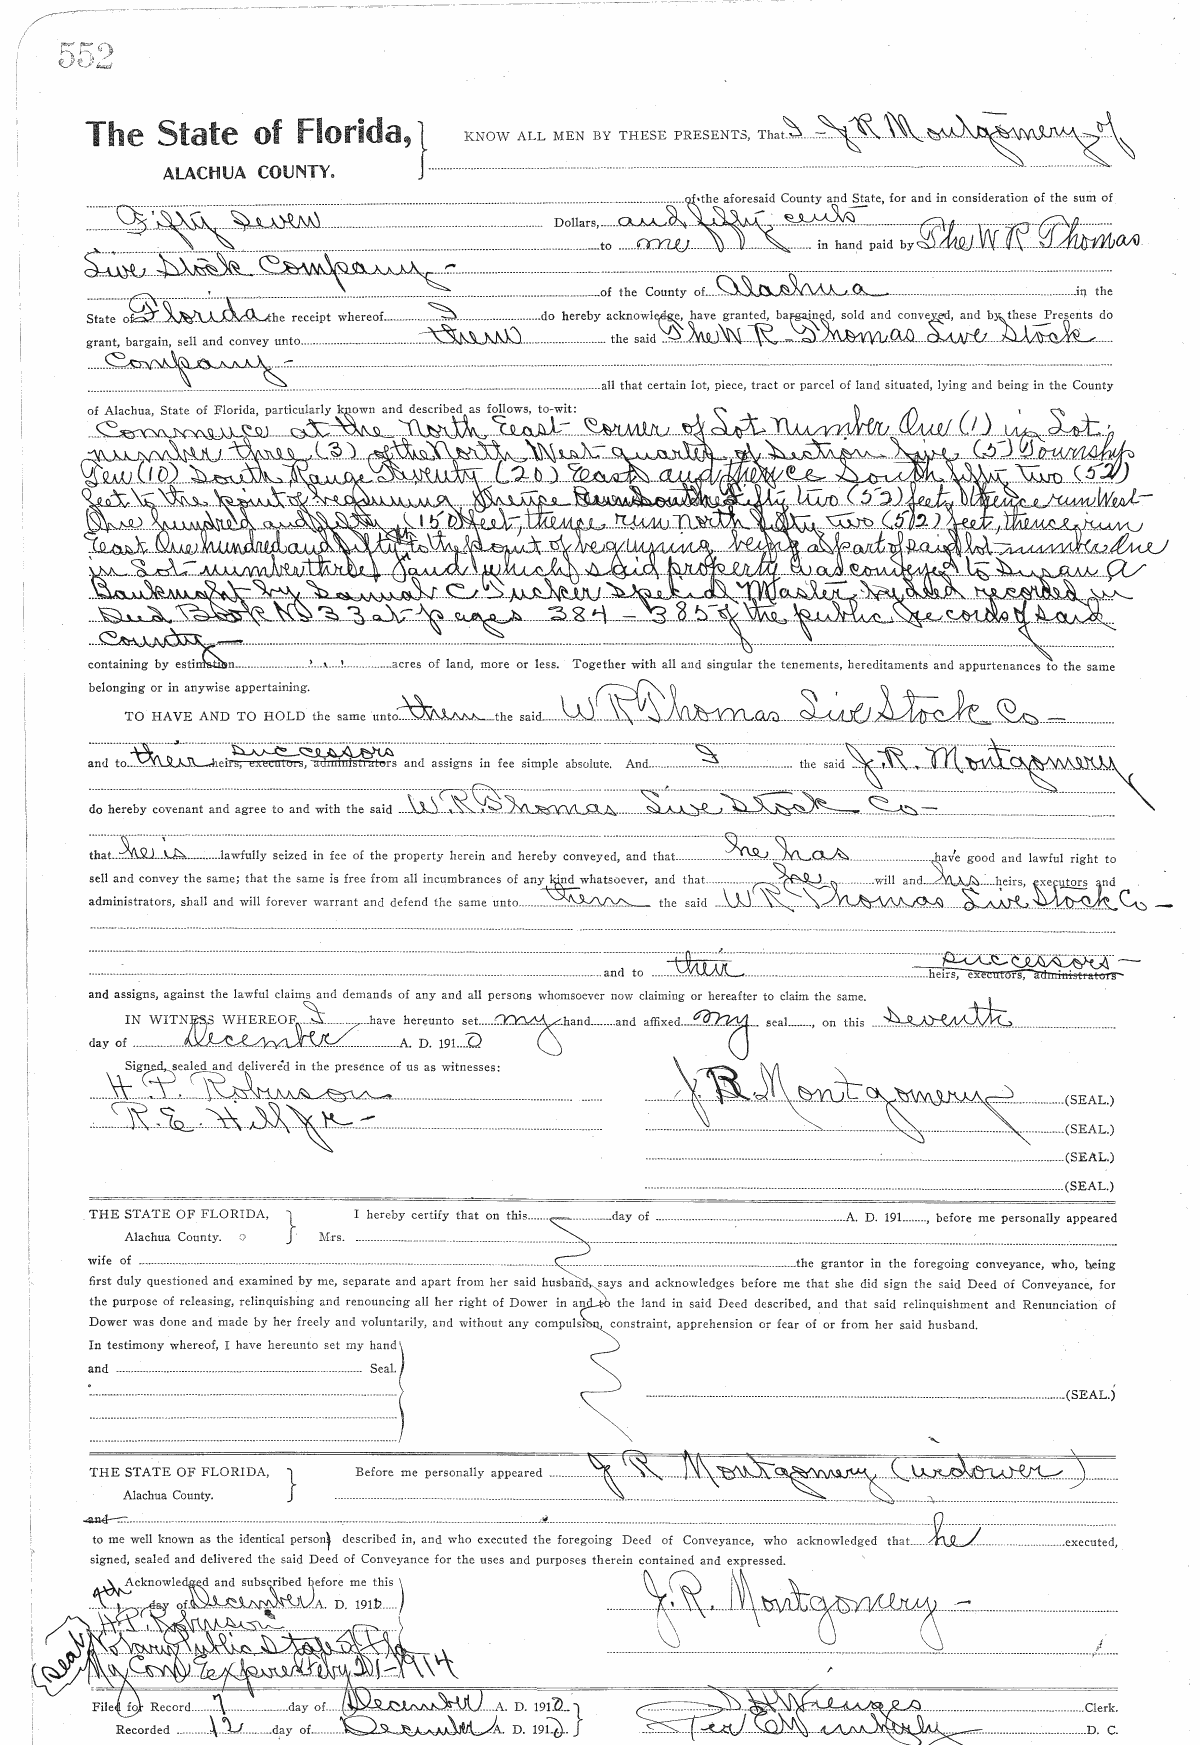 552
The State of Florida,
ALACHUA COUNTY.
KNOW ALL MEN BY THESE PRESENTS, That I J R Montgomery of
of the aforesaid County and State, for and in consideration of the sum of
Fifty Seven Dollars, and fifty cents
to me in hand paid by The W R Thomas
Live Stock Company -
of the County of Alachua in the
State of Florida the receipt whereof I do hereby acknowledge, have granted, bargained, sold and conveyed, and by these Presents do
grant, bargain, sell and convey unto them the said The W R Thomas Live Stock
Company -
all that certain lot, piece, tract or parcel of land situated, lying and being in the County
of Alachua, State of Florida, particularly known and described as follows, to-wit:
Commence at the North East Corner of Lot Number One (1) in Lot
number three (3) of the North West quarter of Section five (5) Township
Ten (10) South Range Twenty (20) East and thence South fifty two (52)
feet to the point of beginning thence fifty two (52) feet, thence run West
One hundred and fifty (150) feet, thence run North fifty two (52) feet, thence run
East One hundred and fifty to the point of beginning being a part of said lot number One
in Lot number three and which said property was conveyed to Susan A
Bauknight by Samuel C Tucker Special Master by deed recorded in
Deed Book No 33 at pages 384 - 385 of the public records of said
County -
containing by estimation acres of land, more or less. Together with all and singular the tenements, hereditaments and appurtenances to the same
belonging or in anywise appertaining.
TO HAVE AND TO HOLD the same unto them the said W R Thomas Live Stock Co -
successors
and to their heirs, executors, administrators and assigns in fee simple absolute. And I the said J. R. Montgomery
do hereby covenant and agree to and with the said W. R. Thomas Live Stock Co -
that he is lawfully seized in fee of the property herein and hereby conveyed, and that he has have good and lawful right to
sell and convey the same; that the same is free from all incumbrances of any kind whatsoever, and that he will and his heirs, executors and
administrators, shall and will forever warrant and defend the same unto them the said W R Thomas Live Stock Co -
successors -
and to their heirs, executors, administrators
and assigns, against the lawful claims and demands of any and all persons whomsoever now claiming or hereafter to claim the same.
IN WITNESS WHEREOF I have hereunto set my hand and affixed my seal, on this Seventh
day of December A. D. 1910
Signed, sealed and delivered in the presence of us as witnesses:
H. P. Robinson
J. R. Montgomery (SEAL.)
R. E. Hill Jr -
(SEAL.)
(SEAL.)
(SEAL.)
THE STATE OF FLORIDA,
Alachua County.
I hereby certify that on this day of A. D. 191 , before me personally appeared
Mrs.
wife of the grantor in the foregoing conveyance, who, being
first duly questioned and examined by me, separate and apart from her said husband, says and acknowledges before me that she did sign the said Deed of Conveyance, for
the purpose of releasing, relinquishing and renouncing all her right of Dower in and to the land in said Deed described, and that said relinquishment and Renunciation of
Dower was done and made by her freely and voluntarily, and without any compulsion, constraint, apprehension or fear of or from her said husband.
In testimony whereof, I have hereunto set my hand
and Seal.
(SEAL.)
THE STATE OF FLORIDA,
Alachua County.
Before me personally appeared J R Montgomery (widower)
and
to me well known as the identical person described in, and who executed the foregoing Deed of Conveyance, who acknowledged that he executed,
signed, sealed and delivered the said Deed of Conveyance for the uses and purposes therein contained and expressed.
Acknowledged and subscribed before me this
7th day of December A. D. 1910
J. R. Montgomery -
H. P. Robinson
Notary Public State of Fla
Seal
My Com Expires Feby 21 - 1914
Filed for Record 7 day of December A. D. 1910
Clerk.
Recorded 12 day of December A. D. 1910
Per E Wimberly D. C.